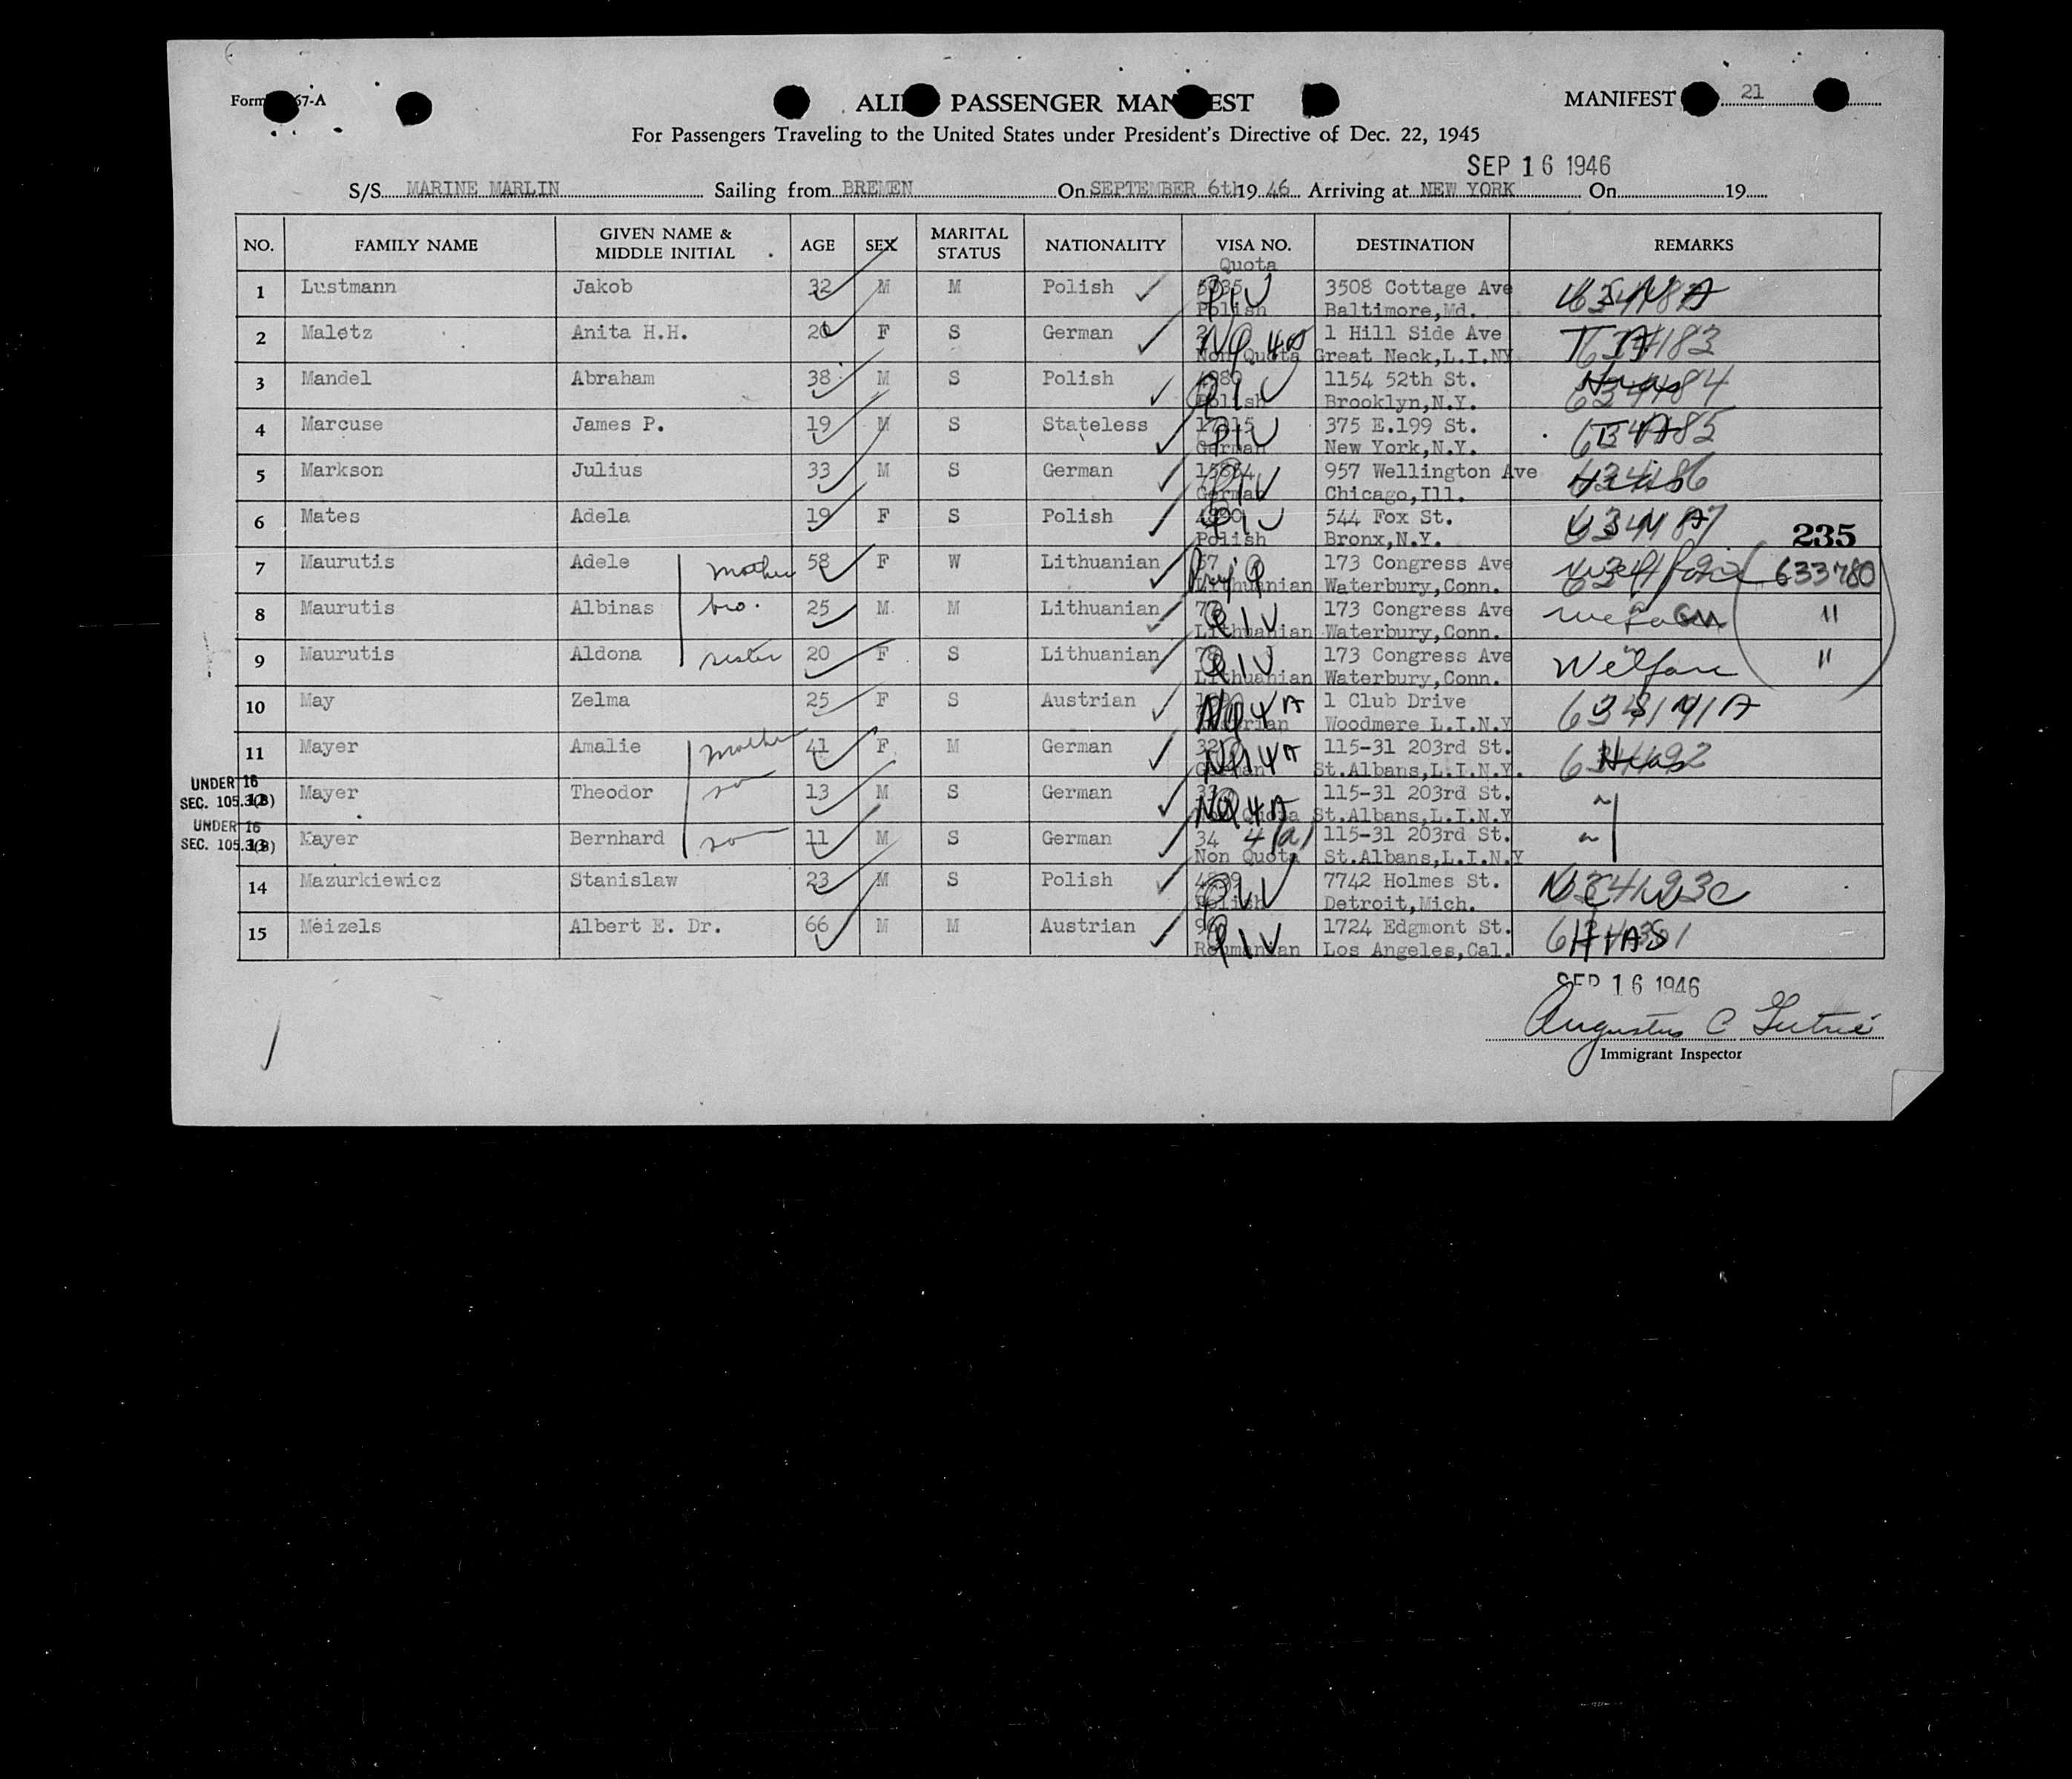 ALIEN PASSENGER MANIFEST
MANIFEST 21
For Passengers Traveling to the United States under President's Directive of Dec. 22, 1945
SEP 16 1946
S/S MARINE MARLIN Sailing from BREMEN On SEPTEMBER 6th 19 46 Arriving at NEW YORK On 19
NO. FAMILY NAME GIVEN NAME & MIDDLE INITIAL AGE SEX MARITAL STATUS NATIONALITY VISA NO. Quota DESTINATION REMARKS
1 Lustmann Jakob 32 M M Polish 3508 Cottage Ave
Polish Baltimore,Md.
2 Maletz Anita H.H. 20 F S German 1 Hill Side Ave
Non Quota Great Neck,L.I.NY
3 Mandel Abraham 38 M S Polish 1154 52th St.
Polish Brooklyn,N.Y.
4 Marcuse James P. 19 M S Stateless 375 E.199 St.
German New York,N.Y.
5 Markson Julius 33 M S German 957 Wellington Ave
German Chicago,Ill.
6 Mates Adela 19 F S Polish 544 Fox St.
Polish Bronx,N.Y.
235
7 Maurutis Adele mother 58 F W Lithuanian 173 Congress Ave 633780
Lithuanian Waterbury,Conn.
8 Maurutis Albinas bro. 25 M M Lithuanian 173 Congress Ave "
Lithuanian Waterbury,Conn.
9 Maurutis Aldona sister 20 F S Lithuanian 173 Congress Ave Welfare "
Lithuanian Waterbury,Conn.
10 May Zelma 25 F S Austrian NQ 4A 1 Club Drive
Woodmere L.I.N.Y
11 Mayer Amalie mother 41 F M German 115-31 203rd St. Hias
St.Albans,L.I.N.Y.
UNDER 16
SEC. 105.3(B)
12 Mayer Theodor son 13 M S German NQ 4A 115-31 203rd St.
St.Albans,L.I.N.Y
UNDER 16
SEC. 105.3(B)
13 Mayer Bernhard son 11 M S German 34 4(a) 115-31 203rd St.
Non Quota St.Albans,L.I.N.Y
14 Mazurkiewicz Stanislaw 23 M S Polish 7742 Holmes St.
Polish Detroit,Mich.
15 Meizels Albert E. Dr. 66 M M Austrian 1724 Edgmont St. HIAS
Roumanian Los Angeles,Cal.
SEP 16 1946
Augustus C
Immigrant Inspector